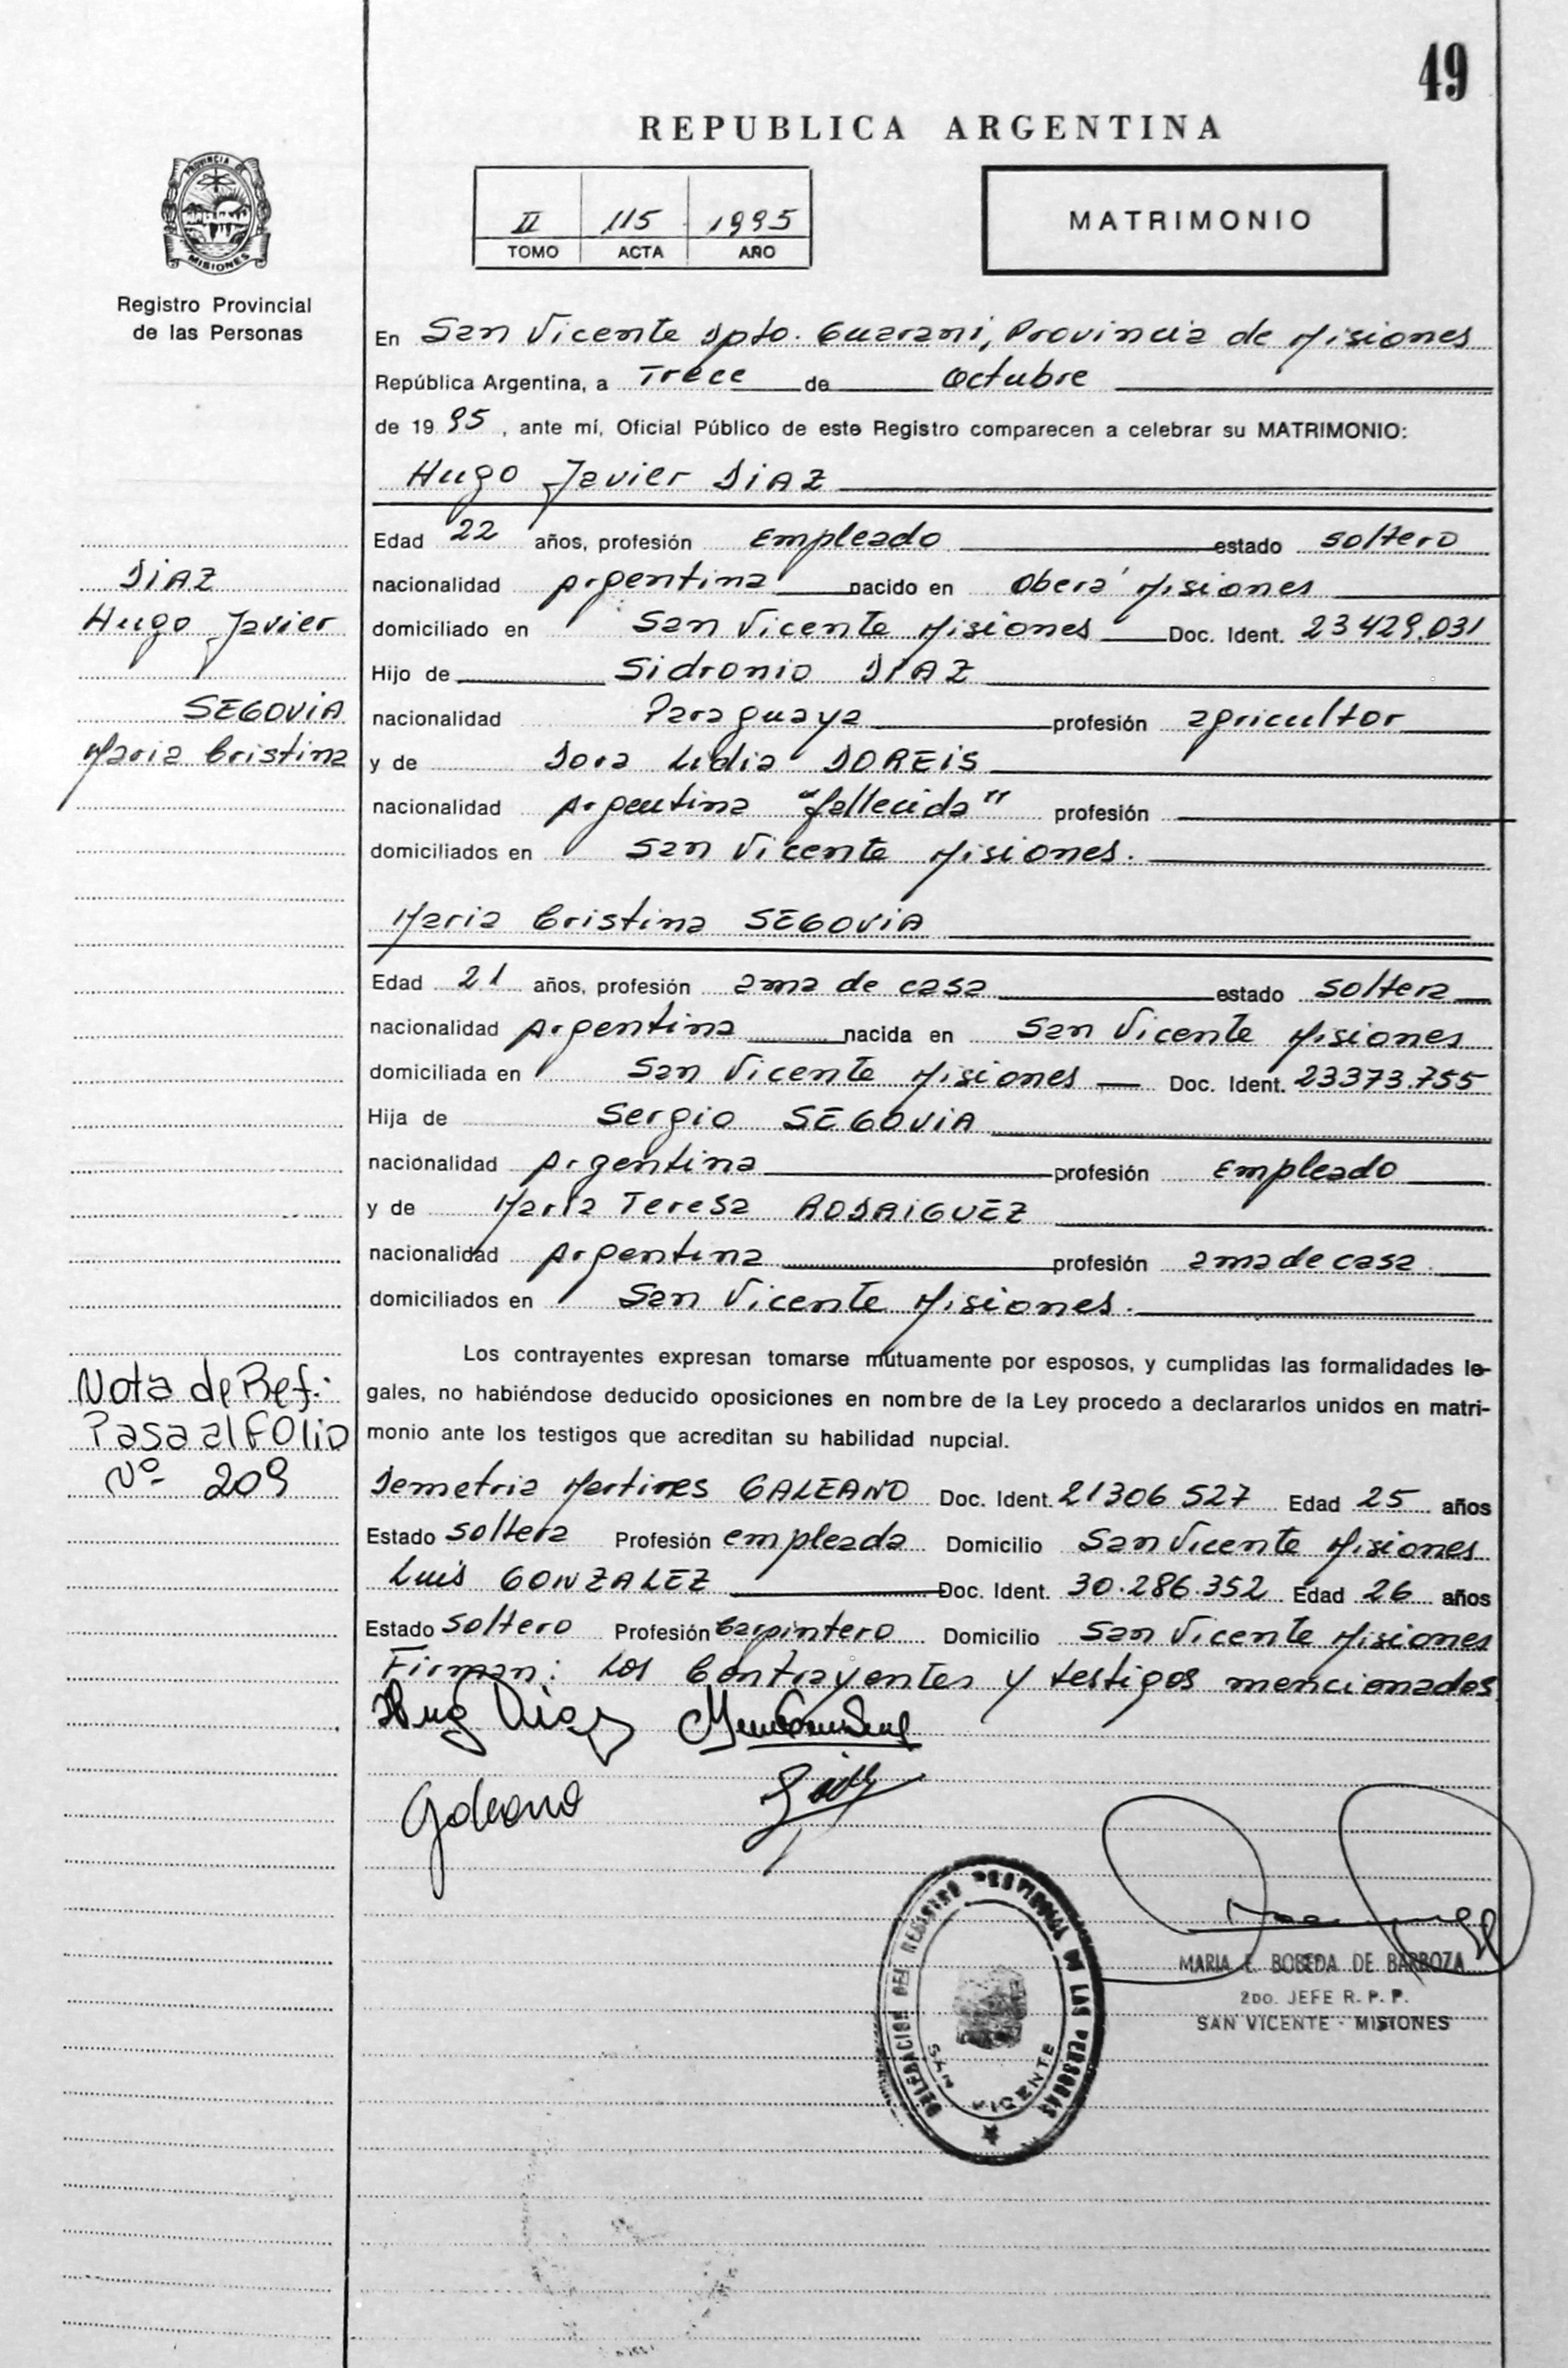 49
REPUBLICA ARGENTINA
PROVINCIA DE
MISIONES
Registro Provincial
de las Personas
II 115 1995
TOMO ACTA AÑO
MATRIMONIO
En San Vicente Dpto. Guarani, Provincia de Misiones
República Argentina, a Trece de Octubre
de 1995, ante mí, Oficial Público de este Registro comparecen a celebrar su MATRIMONIO:
Hugo Javier DIAZ
Edad 22 años, profesión Empleado estado soltero
DIAZ
nacionalidad Argentina nacido en Oberá Misiones
Hugo Javier
domiciliado en San Vicente Misiones Doc. Ident. 23429.031
Hijo de Sidronio DIAZ
SEGOVIA
nacionalidad Paraguaya profesión agricultor
Maria Cristina
y de Dora Lidia DOREIS
nacionalidad Argentina "fallecida" profesión
domiciliados en San Vicente Misiones.
Maria Cristina SEGOVIA
Edad 21 años, profesión ama de casa estado soltera
nacionalidad Argentina nacida en San Vicente Misiones
domiciliada en San Vicente Misiones Doc. Ident. 23373.755
Hija de Sergio SEGOVIA
nacionalidad Argentina profesión Empleado
y de Maria Teresa RODRIGUEZ
nacionalidad Argentina profesión ama de casa
domiciliados en San Vicente Misiones.
Los contrayentes expresan tomarse mutuamente por esposos, y cumplidas las formalidades le-
gales, no habiéndose deducido oposiciones en nombre de la Ley procedo a declararlos unidos en matri-
monio ante los testigos que acreditan su habilidad nupcial.
Nota de Ref.:
Pasa al FOlio
Nº 209
Demetria Martires GALEANO Doc. Ident. 21306 527 Edad 25 años
Estado soltera Profesión empleada Domicilio San Vicente Misiones
Luis GONZALEZ Doc. Ident. 30.286.352 Edad 26 años
Estado soltero Profesión Carpintero Domicilio San Vicente Misiones
Firman: Los Contrayentes y testigos mencionados
Hugo Diaz
Galeano
DELEGACION DEL REGISTRO PROVINCIAL DE LAS PERSONAS
SAN VICENTE
MARIA E. BOBEDA DE BARBOZA
2DO. JEFE R. P. P.
SAN VICENTE - MISIONES